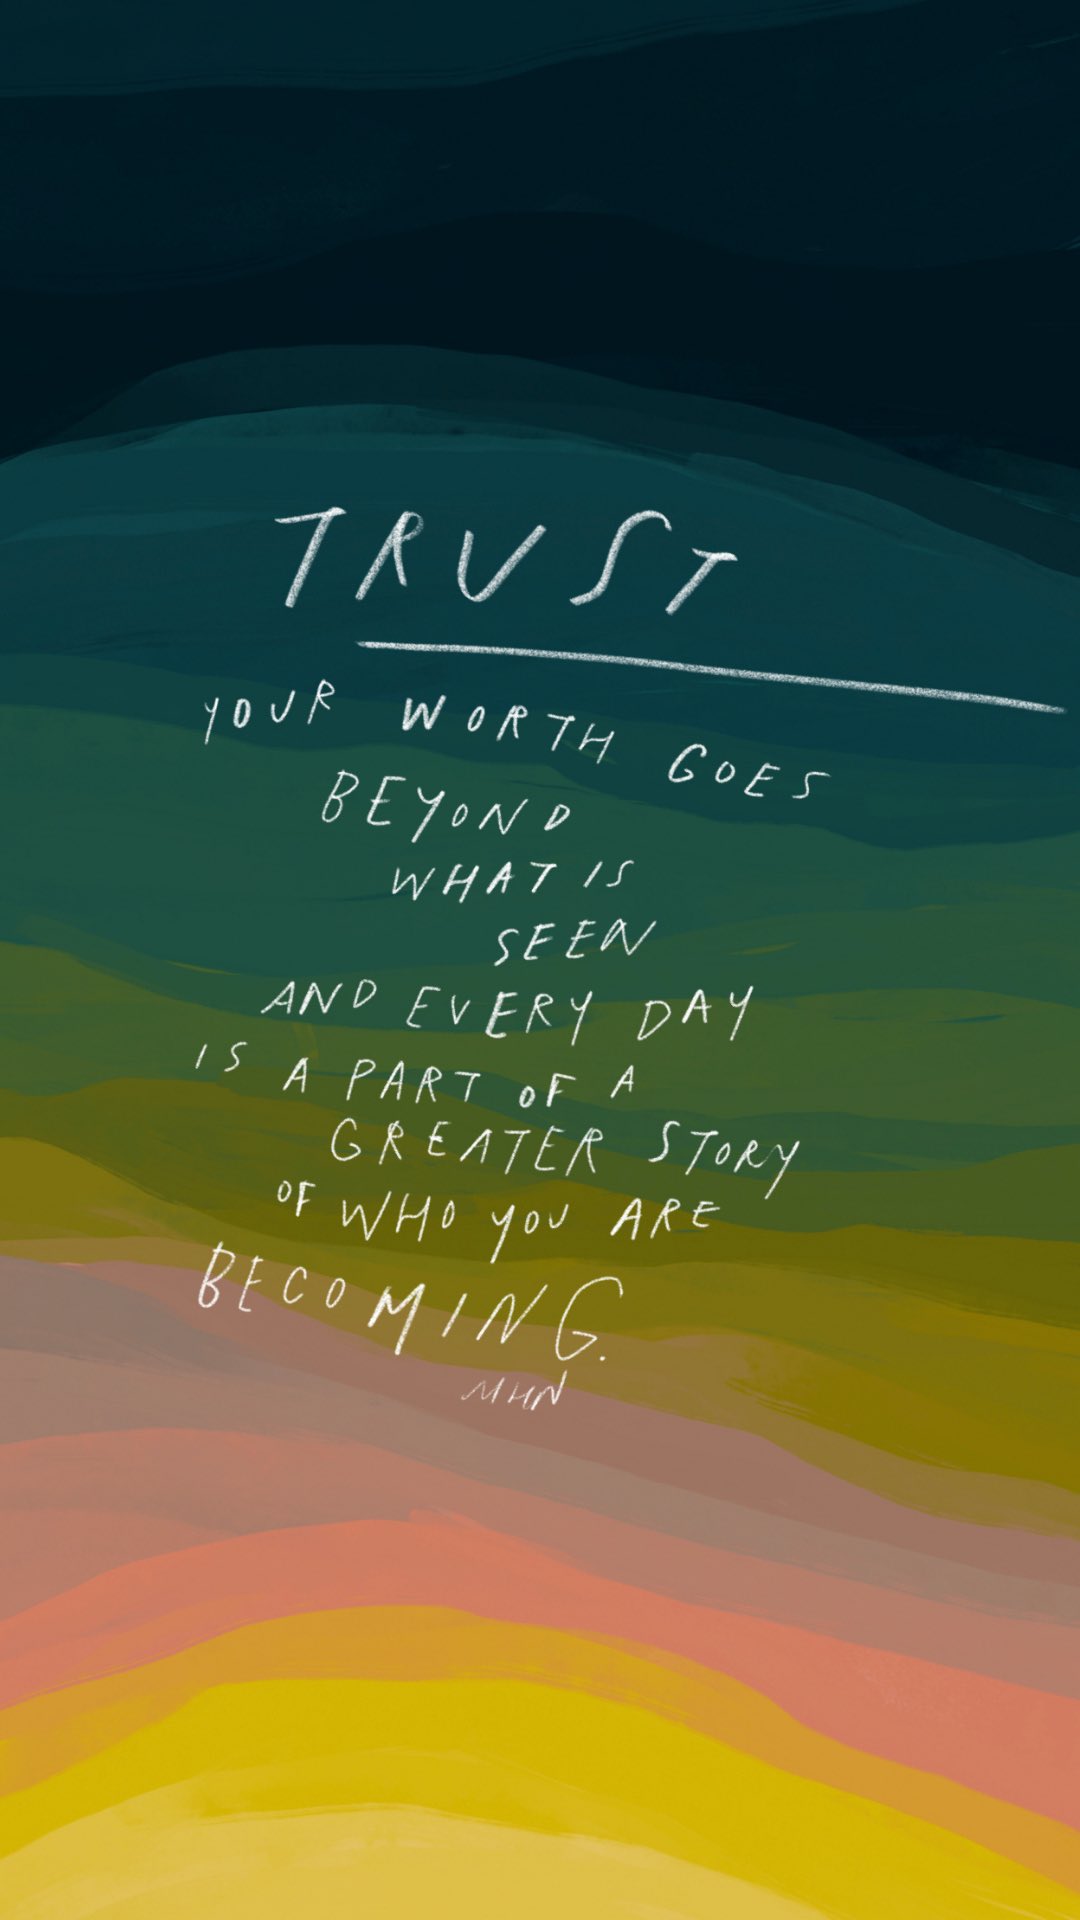 TRUST
YOUR WORTH GOES
BEYOND
WHAT IS
SEEN
AND EVERY DAY
IS A PART OF A
GREATER STORY
OF WHO YOU ARE
BECOMING.
MHN